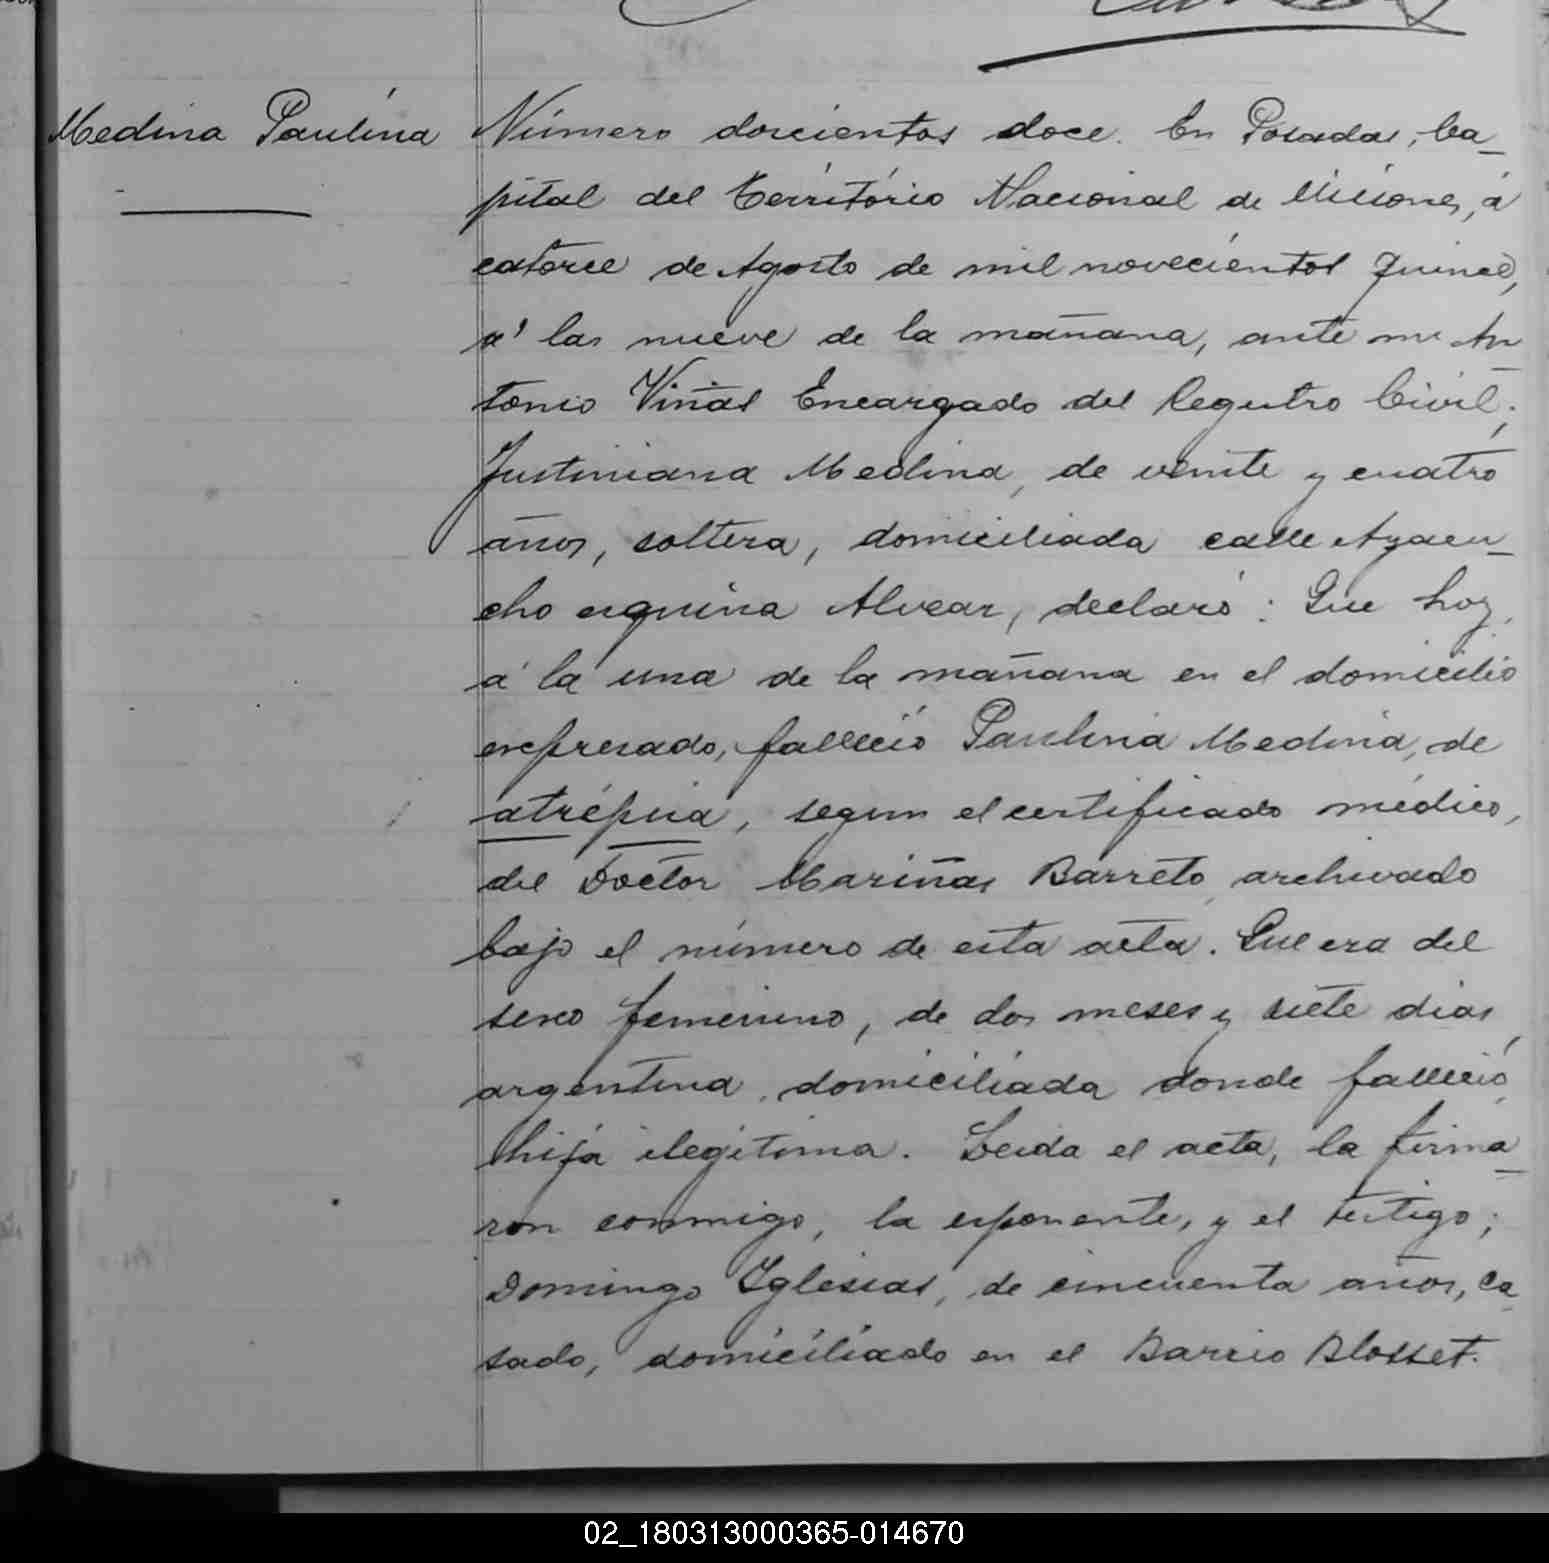 Medina Paulina
Número doscientos doce. En Posadas, Ca-
pital del Território Nacional de Misiones, á
catorce de Agosto de mil novecientos quince,
a' las nueve de la mañana, ante mi An
tonio Viñas Encargado del Registro Civil;
Justiniana Medina, de veinte y cuatro
años, soltera, domiciliada calle Ayacu-
cho esquina Alvear, declaró: Que hoy,
á la una de la mañana en el domicilio
expresado, falleció Paulina Medina, de
atrépsia, segun el certificado médico,
del Doctor Mariñas Barreto, archivado
bajo el número de esta acta. Que era del
sexo femenino, de dos meses y siete dias,
argentina, domiciliada donde falleció,
hija ilegítima. Leida el acta, la firma-
ron conmigo, la esponente, y el testigo;
Domingo Iglesias, de cincuenta años, ca
sado, domiciliado en el Barrio Blosset.
02_180313000365-014670